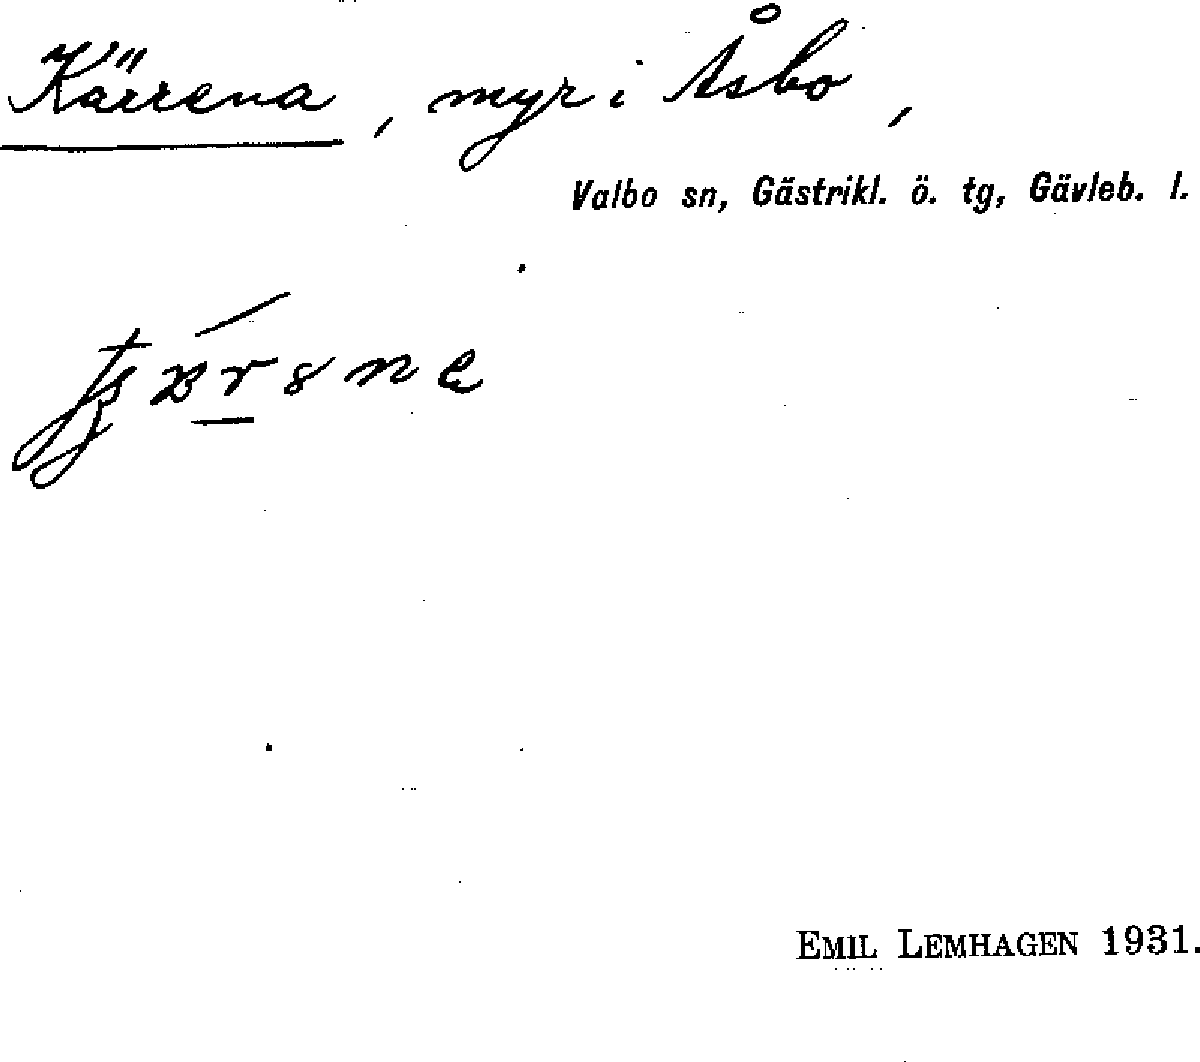 Kärrena, myr i Åsbo,
Valbo sn, Gästrikl. ö. tg, Gävleb. l.
EMIL LEMHAGEN 1931.